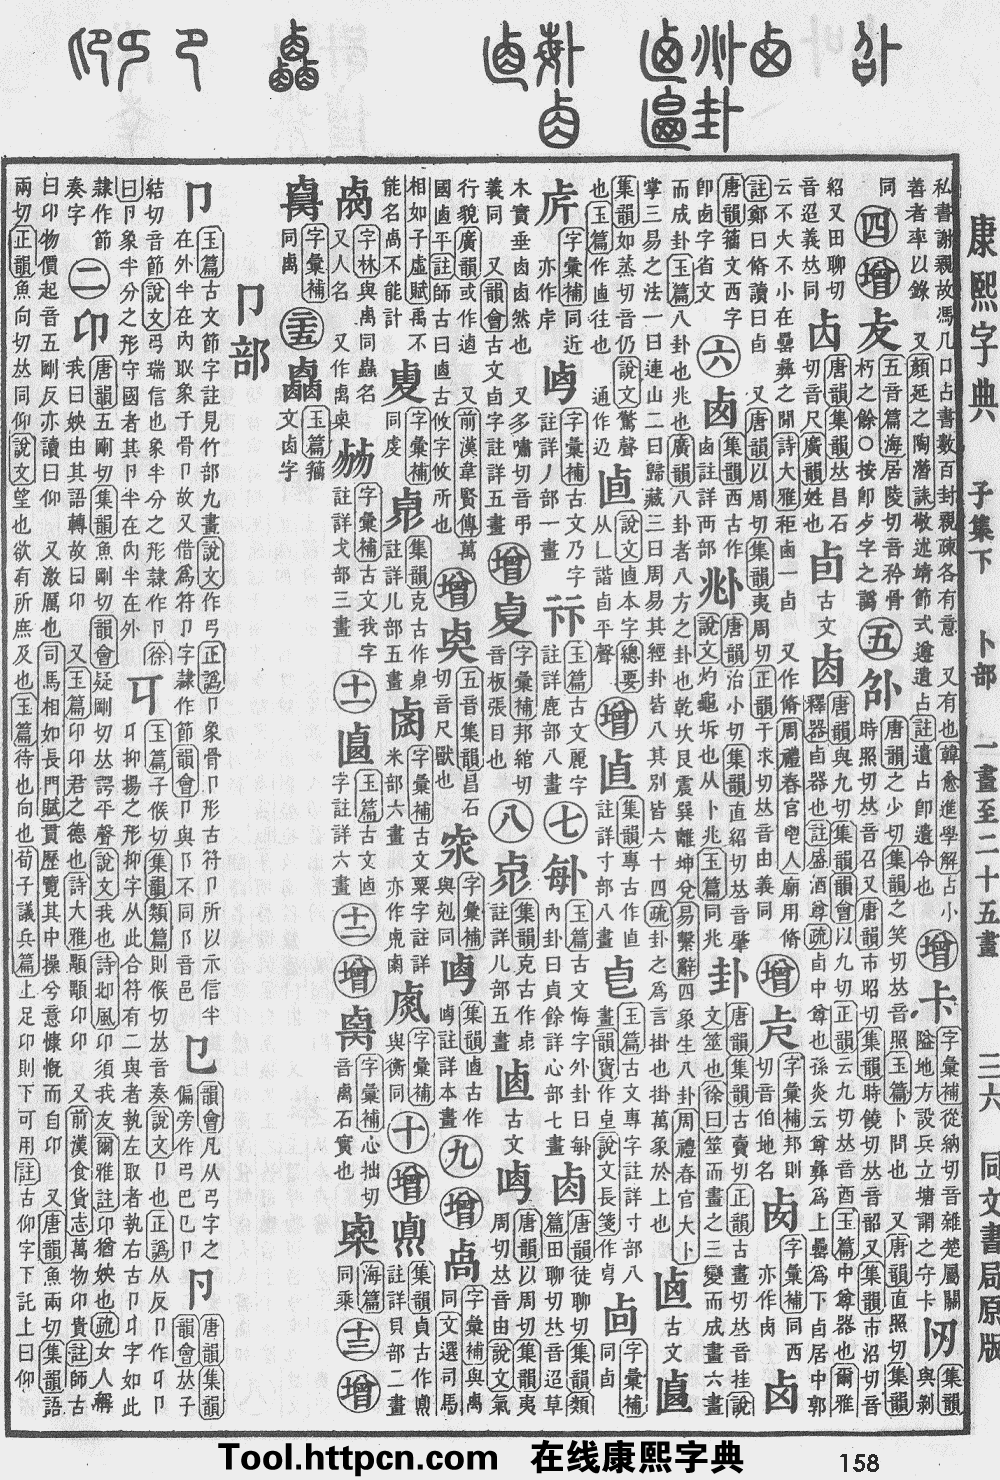 康熙字典 子集下 卜部 一畫至二十五畫 三六 同文書局原版
私書謝親故馮几口占書數百封親疎各有意
善者率以錄 又顏延之陶潛誄敬述靖節式遵遺占註遺占卽遺令也
又有也韓愈進學解占小
增 卡 字彙補從納切音雜楚屬關
隘地方設兵立塘謂之守卡
集韻與剝同
四
增
五音篇海居陵切音矜骨
朽之餘○按卽歺字之譌
五
卲 唐韻之少切集韻之笑切𠀤音照玉篇卜問也 又唐韻直照切集韻
時照切𠀤音召又唐韻市昭切集韻時饒切𠀤音韶又集韻市沼切音
紹又田聊切
音迢義𠀤同
唐韻集韻𠀤昌石
切音尺廣韻姓也
卣 古文
唐韻與九切集韻韻會以九切正韻云九切𠀤音酉玉篇中尊器也爾雅
釋器卣器也註盛酒尊疏卣中尊也孫炎云尊彝爲上罍爲下卣居中郭
云不大不小在罍彝之閒詩大雅秬鬯一卣 又作脩周禮春官鬯人廟用脩
註鄭曰脩讀曰卣 又唐韻以周切集韻夷周切正韻于求切𠀤音由義同
增 字彙補邦則
切音伯地名
字彙補同西
亦作卤
唐韻籀文西字
卽鹵字省文
六
卤 集韻西古作
卤註詳西部
𠧞 唐韻治小切集韻直紹切𠀤音肇
說文灼龜坼也从卜兆玉篇同兆
卦 唐韻集韻古賣切正韻古畫切𠀤音挂說
文筮也徐曰筮而畫之三變而成畫六畫
而成卦玉篇八卦也兆也廣韻八卦者八方之卦也乾坎艮震巽離坤兌易繫辭四象生八卦周禮春官大卜
掌三易之法一曰連山二曰歸藏三曰周易其經卦皆八其別皆六十四疏卦之爲言掛也掛萬象於上也
卥 古文
集韻如蒸切音仍說文驚聲
也玉篇作逌往也 通作迺
說文逌本字總要
从乚諧卣平聲
增 集韻專古作叀
註詳寸部八畫
玉篇古文專字註詳寸部八
畫韻寶作皀說文長箋作
字彙補
同卣
字彙補同近
亦作
字彙補古文乃字
註詳丿部一畫
玉篇古文麗字
註詳鹿部八畫
七
玉篇古文悔字外卦曰𠧩
內卦曰貞餘詳心部七畫
唐韻徒聊切集韻類
篇田聊切𠀤音迢草
木實垂卤卤然也 又多嘯切音弔
義同 又韻會古文卣字註詳五畫
增 字彙補邦綰切
音板張目也
八
集韻克古作
註詳儿部五畫
逌 古文
唐韻以周切集韻夷
周切𠀤音由說文氣
行貌廣韻或作逌 又前漢韋賢傳萬
國逌平註師古曰逌古攸字攸所也
增 五音集韻昌石
切音尺獸也
字彙補
與剋同
集韻卥古作
註詳本畫
九
增
卨 字彙補與离
同文選司馬
相如子虛賦禹不
能名卨不能計
字彙補
同虔
集韻克古作
註詳儿部五畫
字彙補古文粟字註詳
米部六畫 亦作
字彙補
與衡同
十
增 集韻貞古作
註詳貝部二畫
字林與禼同蟲名
又人名 又作
字彙補古文我字
註詳戈部三畫
十一
玉篇古文卣
字註詳六畫
十二
增 字彙補心拙切
音离石實也
海篇
同乘
十三
增
字彙補
同禼
二十五
玉篇籀
文卤字
卩部
卩 玉篇古文節字註見竹部九畫說文作㔾正譌卩象骨卩形古符卩所以示信半
在外半在內取象于骨卩故又借爲符卩字隸作節韻會卩與阝不同阝音邑
㔾 韻會凡从㔾字之
偏旁作㔾巴㔾卩
唐韻集韻
韻會𠀤子
結切音節說文㔾瑞信也象半分之形隸作卩徐
曰卩象半分之形守國者其卩半在內半在外
玉篇子㑵切集韻類篇則㑵切𠀤音奏說文卩也正譌从反卩作
卩抑揚之形抑字从此合符有二與者執左取者執右古卩字如此
隸作節
奏字
二
卬 唐韻五剛切集韻魚剛切韻會疑剛切𠀤諤平聲說文我也詩邶風卬須我友爾雅註卬猶姎也疏女人稱
我曰姎由其語轉故曰卬 又玉篇卬卬君之德也詩大雅顒顒卬卬 又前漢食貨志萬物卬貴註師古
曰卬物價起音五剛反亦讀曰仰 又激厲也司馬相如長門賦貫歷覽其中操兮意慷慨而自卬 又唐韻魚兩切集韻語
兩切正韻魚向切𠀤同仰說文望也欲有所庶及也玉篇待也向也荀子議兵篇上足卬則下可用註古仰字下託上曰仰
Tool.httpcn.com 在线康熙字典
158